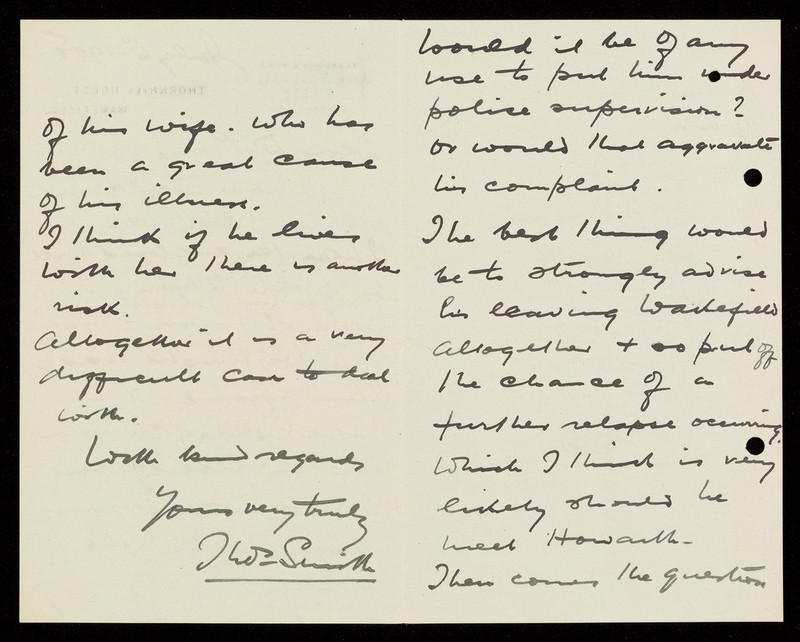 Would it be of any
use to put him under
police supervision?
or would that aggravate
his complaint.
The best thing would
be to strongly advise
his leaving Wakefield
altogether + so put off
the chance of a
further relapse occurring.
Which I think is very
likely should he
meet Howarth -
Then comes the question
of his wife. Who has
been a great cause
of his illness.
I think if he lives
with her there is another
risk.
Altogether it is a very
difficult case to deal
with.
With kind regards
Yours very truly
Thos Smith